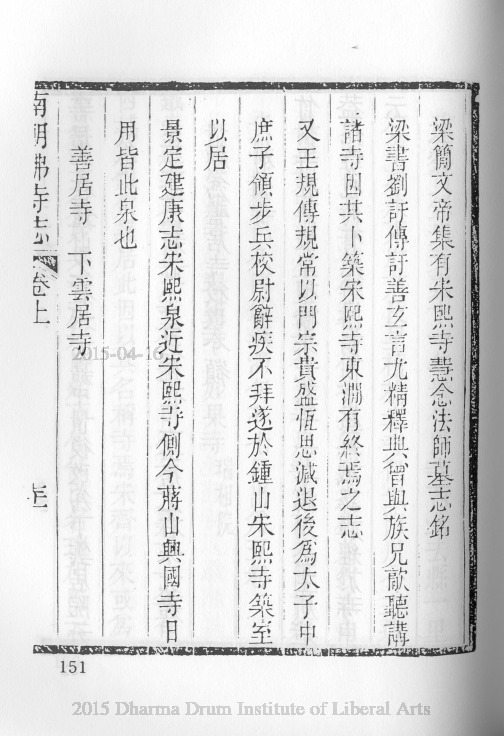 梁簡文帝集有宋熙寺慧念法師墓志銘
梁書劉訏傳訏善玄言尤精釋典曾與族兄歊聽講
諸寺因其卜築宋熙寺東澗有終焉之志
又王規傳規常以門宗貴盛恆思減退後為太子中
庶子領步兵校尉辭疾不拜遂於鍾山宋熙寺築室
以居
景定建康志宋熙泉近宋熙寺側今蔣山興國寺日
用皆此泉也
善居寺 下雲居寺
南朝佛寺志 卷上
151
2015-04-16
2015 Dharma Drum Institute of Liberal Arts